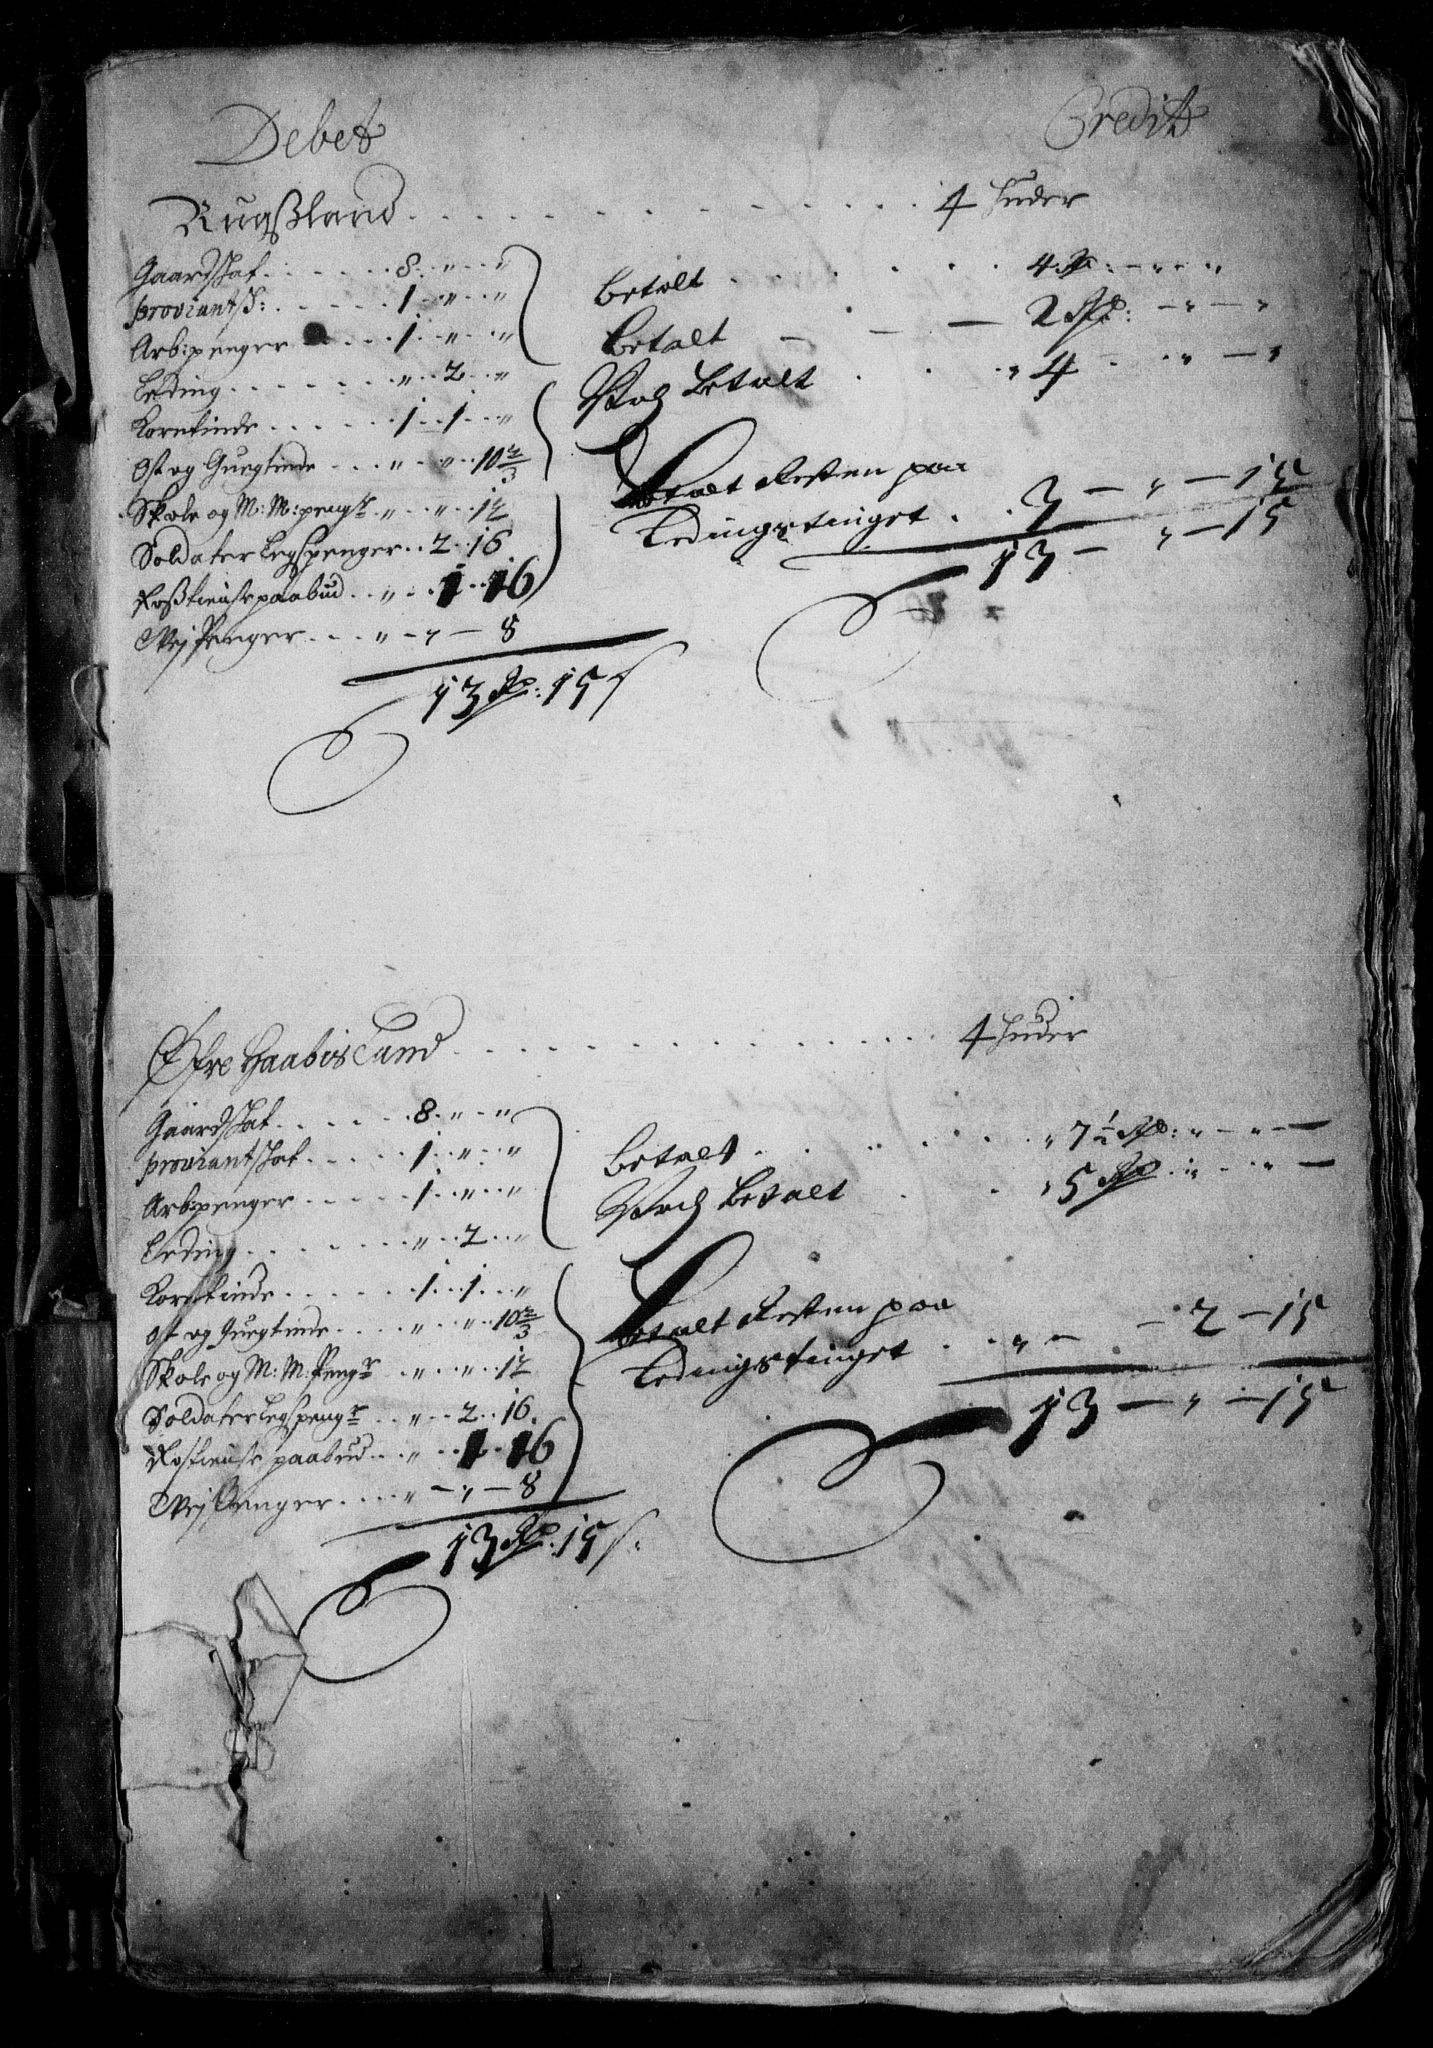 Debet
Credit
Rugßland . . . . . . . . . . . . . . . 4 huder
Gaardskat . . . . . . 8 .. " .. "
proviantsk: . . . . . 1 .. " .. "
Arb:penger . . . . . 1 .. " .. "
Leding . . . . . . . " .. 2 .. "
Korntinde . . . . . . 1 .. 1 .. "
Ost og Quegtinde . . . " .. " .. 10 2/3
Skole og M: M: pengr . . " .. " .. 12
Soldater Legspenger .. 2 .. 16
Roßtieniste paabud . . " .. 1 .. 16
Vej Penger . . . " - " - 8
13 Rd: 15 s
betalt . . . . . . . 4 Rd: - " - "
betalt - - - 2 Rd: - " - "
Noch betalt . . . " 4 . . " - "
betalt Resten paa
Ledingstinget . . 3 - " - 15
13 - " - 15
Øfre Haabesland . . . . . . . . . . . . . . 4 huder
Gaardskat . . . . . . 8 .. " .. "
proviantskat . . . . . 1 .. " .. "
Arb:penger . . . . . 1 .. " .. "
Leding . . . . . . . " .. 2 .. "
Korntinde . . . . . . 1 .. 1 .. "
Ost og Quegtinde . . . . " .. " .. 10 2/3
Skole og M: M: Pengr . . " .. " .. 12
Soldater Legspengr . . " .. 2 .. 16
Rostieniste paabud . . " .. 1 .. 16
Vej Penger . . . . " - " - 8
13 Rd: 15 s:
betalt . . . . . . . " 7 1/2 Rd: " - " -
Noch betalt . . . " 5 Rd: " - " -
betalt Resten paa
Ledingstinget . . " - - 2 - 15
13 - " - 15